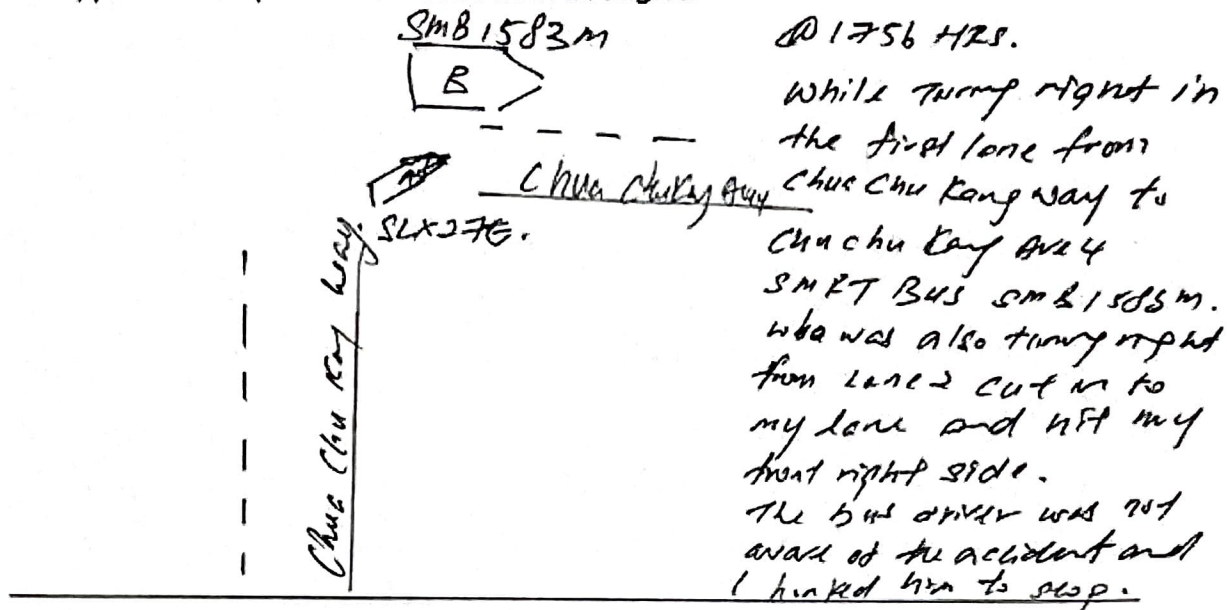 SMB1583M
B
Chua Chu Kang Ave 4
SLX27E.
Chua Chu Kay Way.
@ 1756 HRS.
While Turng right in
the first lane from
Chua Chu Kang Way to
Chu chu Kang Ave 4
SMRT Bus SMB1583M.
who was also turng right
from Lane 2 cut in to
my lane and hit my
front right side.
The bus driver was not
aware of the accident and
I honked him to stop.